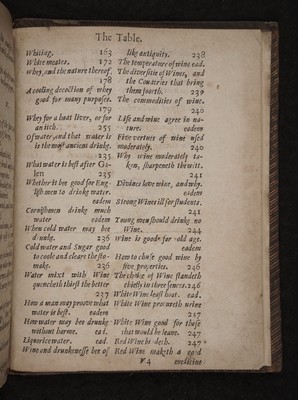 The Table.
Whiting. 163
White meates. 172
Whey, and the nature thereof.
178
A cooling decoction of whey
good for many purposes.
179
Whey for a hoat liver, or for
an itch. 255
Of water, and that water is
the most ancient drinke.
235
What water is best after Ga-
len 235
Whether it bee good for Eng-
lish men to drinke water.
eadem
Cornishmen drinke much
water eadem
When cold water may bee
drunke. 236
Cold water and Sugar good
to coole and cleare the sto-
make. 236
Water mixt with Wine
quencheth thirst the better
237
How a man may proove what
water is best. eadem
How water may bee drunke
without harme. ead.
Liquorice water. ead.
Wine and drunkennesse bee of
like antiquity. 238
The temperature of wine ead.
The diversitie of Wines, and
the Countries that bring
them foorth. 239
The commodities of wine.
240
Life and wine agree in na-
ture. eadem
Five vertues of wine used
moderately. 240
Why wine moderately ta-
ken, sharpeneth the wit.
241
Divines love wine, and why.
eadem
Strong Wines ill for students.
241
Young men should drinke no
Wine. 244
Wine is good for old age.
eadem
How to chuse good wine by
five properties. 246
The choise of Wine standeth
chiefly in three senses. 246
White Wine least hoat. ead.
White Wine procureth urine
247
White Wine good for those
that would be leane. 247
Red Wine bindeth. 247
Red Wine maketh a good
V 4 medicine